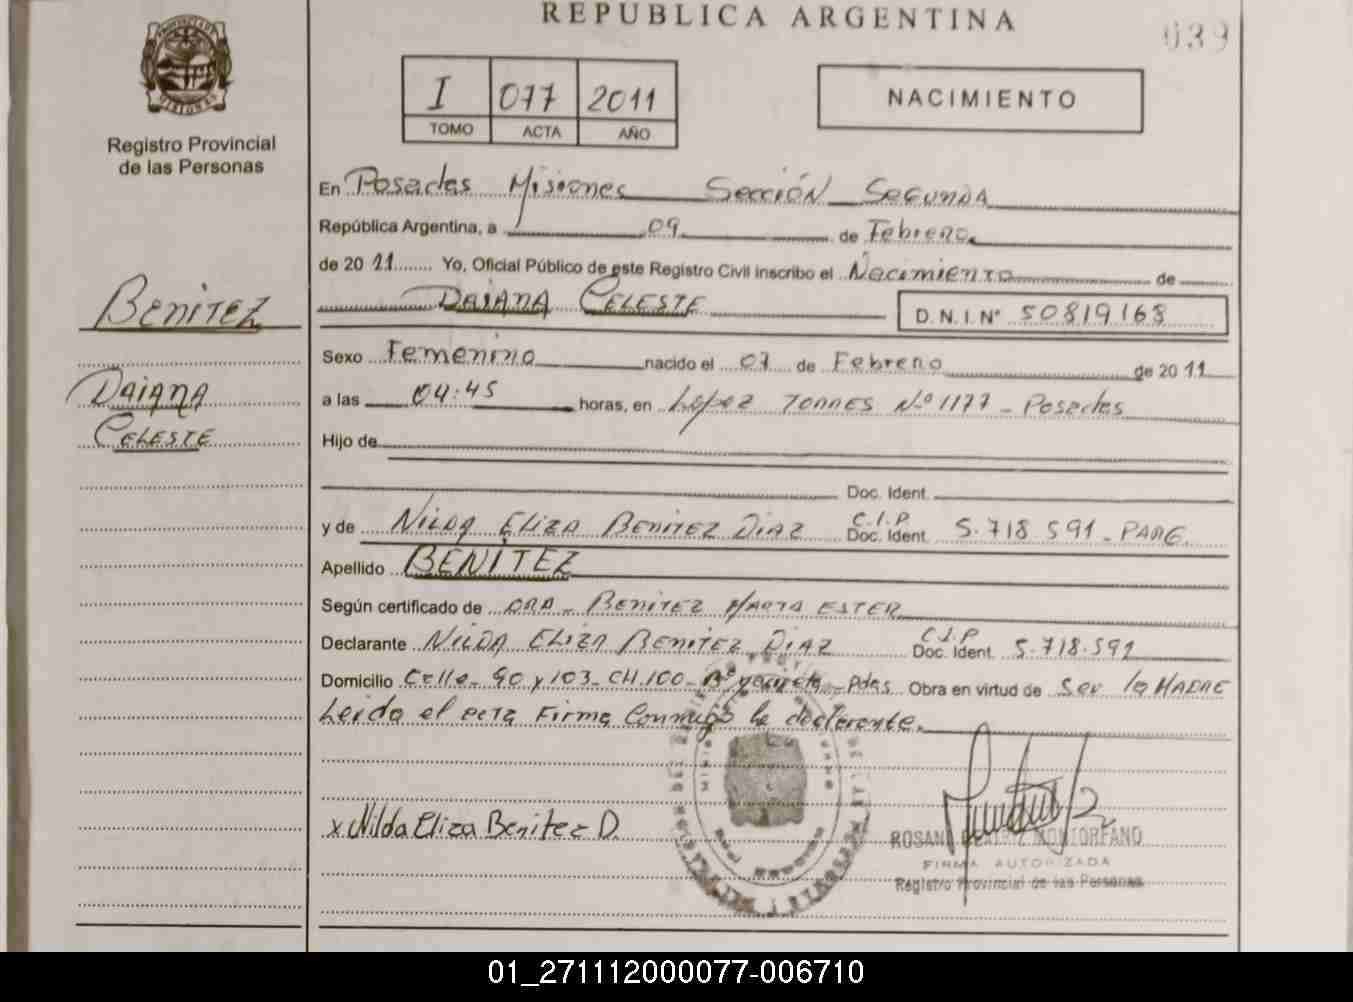 REPUBLICA ARGENTINA
039
PROVINCIA DE
MISIONES
Registro Provincial
de las Personas
I 077 2011
TOMO ACTA AÑO
NACIMIENTO
En Posadas Misiones Sección Segunda
República Argentina, a 09 de Febrero
de 2011 Yo, Oficial Público de este Registro Civil inscribo el Nacimiento de
DAIANA CELESTE D.N.I. Nº 50819168
BENITEZ
DAIANA
CELESTE
Sexo Femenino nacido el 07 de Febrero de 2011
a las 04:45 horas, en López Torres Nº 1177 - Posadas
Hijo de
Doc. Ident.
y de Nilda Eliza Benitez Diaz C.I.P. Doc. Ident. 5.718.591 - PARG.
Apellido BENÍTEZ
Según certificado de DRA - Benitez Marta Ester
Declarante Nilda Eliza Benitez Diaz C.I.P Doc. Ident. 5.718.591
Domicilio Calle - 90 y 103 - CH.100 - Bº Yacyreta - Pdas Obra en virtud de Ser la MADRE
Leída el acta Firma Conmigo la declarante.
x Nilda Eliza Benitez D.
ROSANA BEATRIZ MONTORFANO
FIRMA AUTORIZADA
Registro Provincial de las Personas
01_271112000077-006710